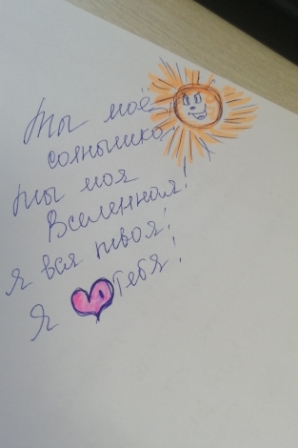 Ты моё
солнышко
Ты моя
Вселенная!
Я вся твоя!
Я Тебя!